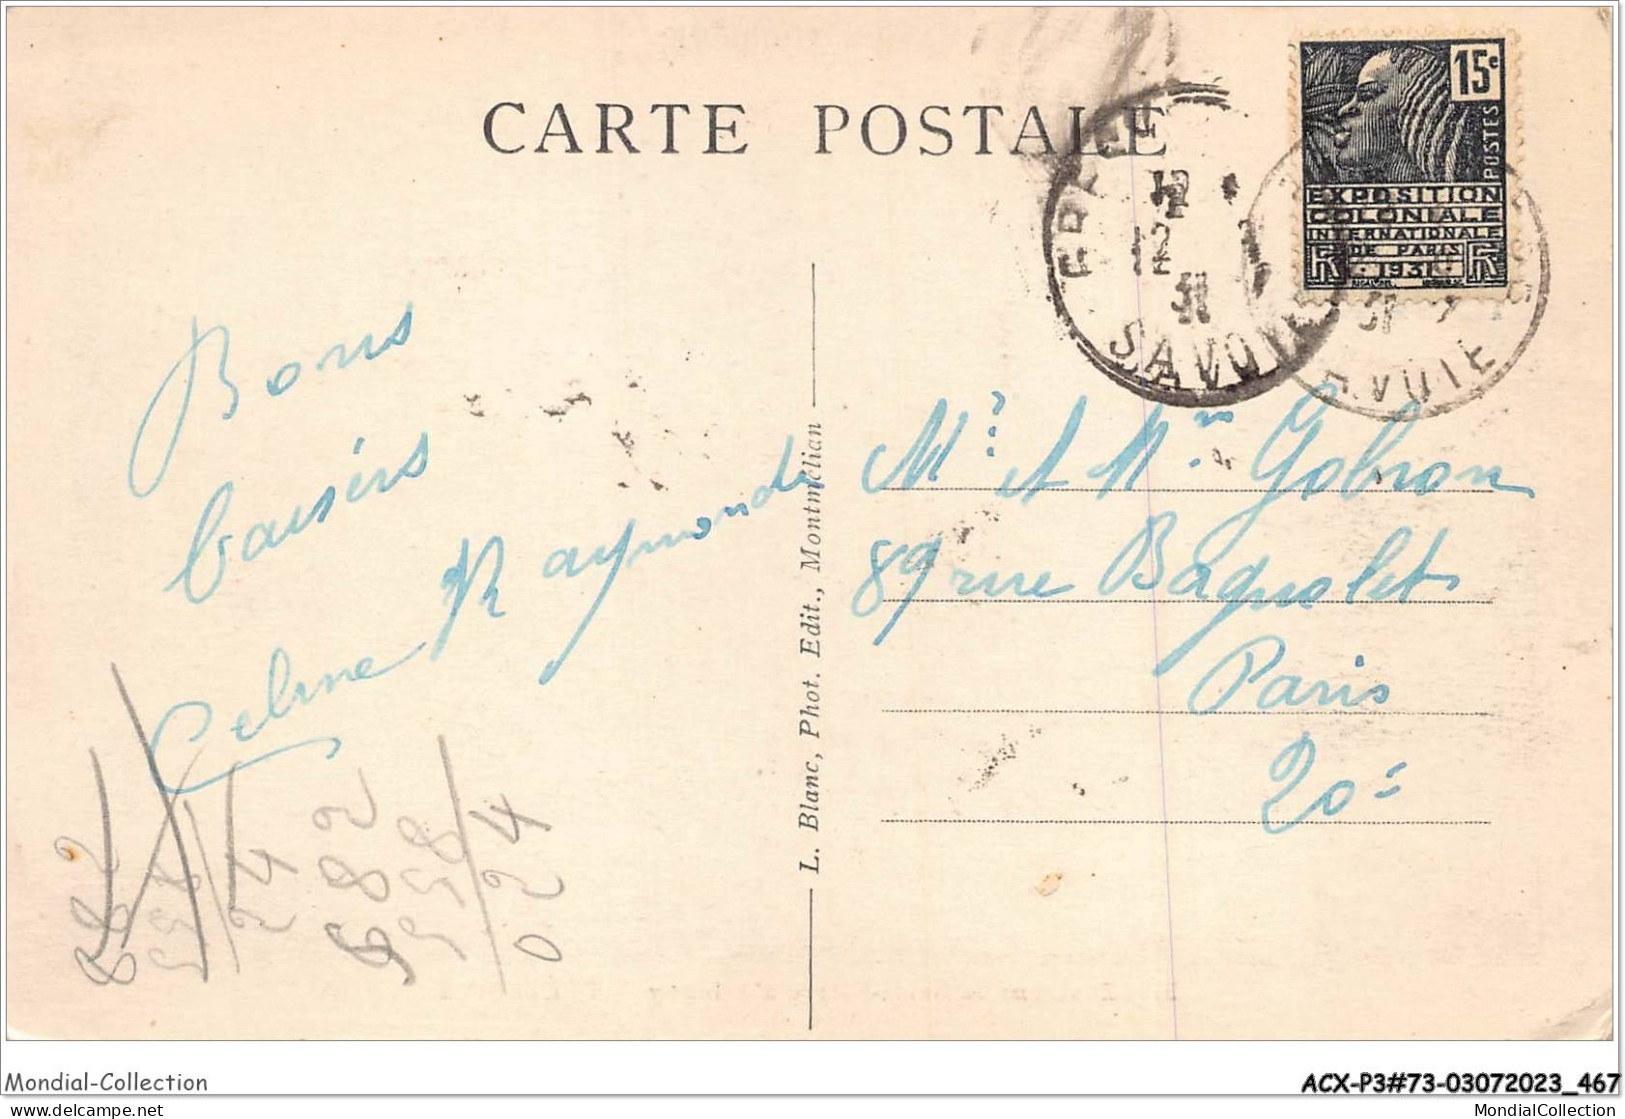 CARTE POSTALE
15c
POSTES
EXPOSITION
COLONIALE
INTERNATIONALE
DE PARIS
RF 1931 RF
12
12
31
SAVOIE
31
AVOIE
Bons
baisers
Celine Raymonde
L. Blanc, Phot. Edit., Montmélian
Mr et Mm Gobron
89 rue Bagnolet
Paris
20e
882
24
882
024
Mondial-Collection
ACX-P3#73-03072023_467
delcampe.net
MondialCollection